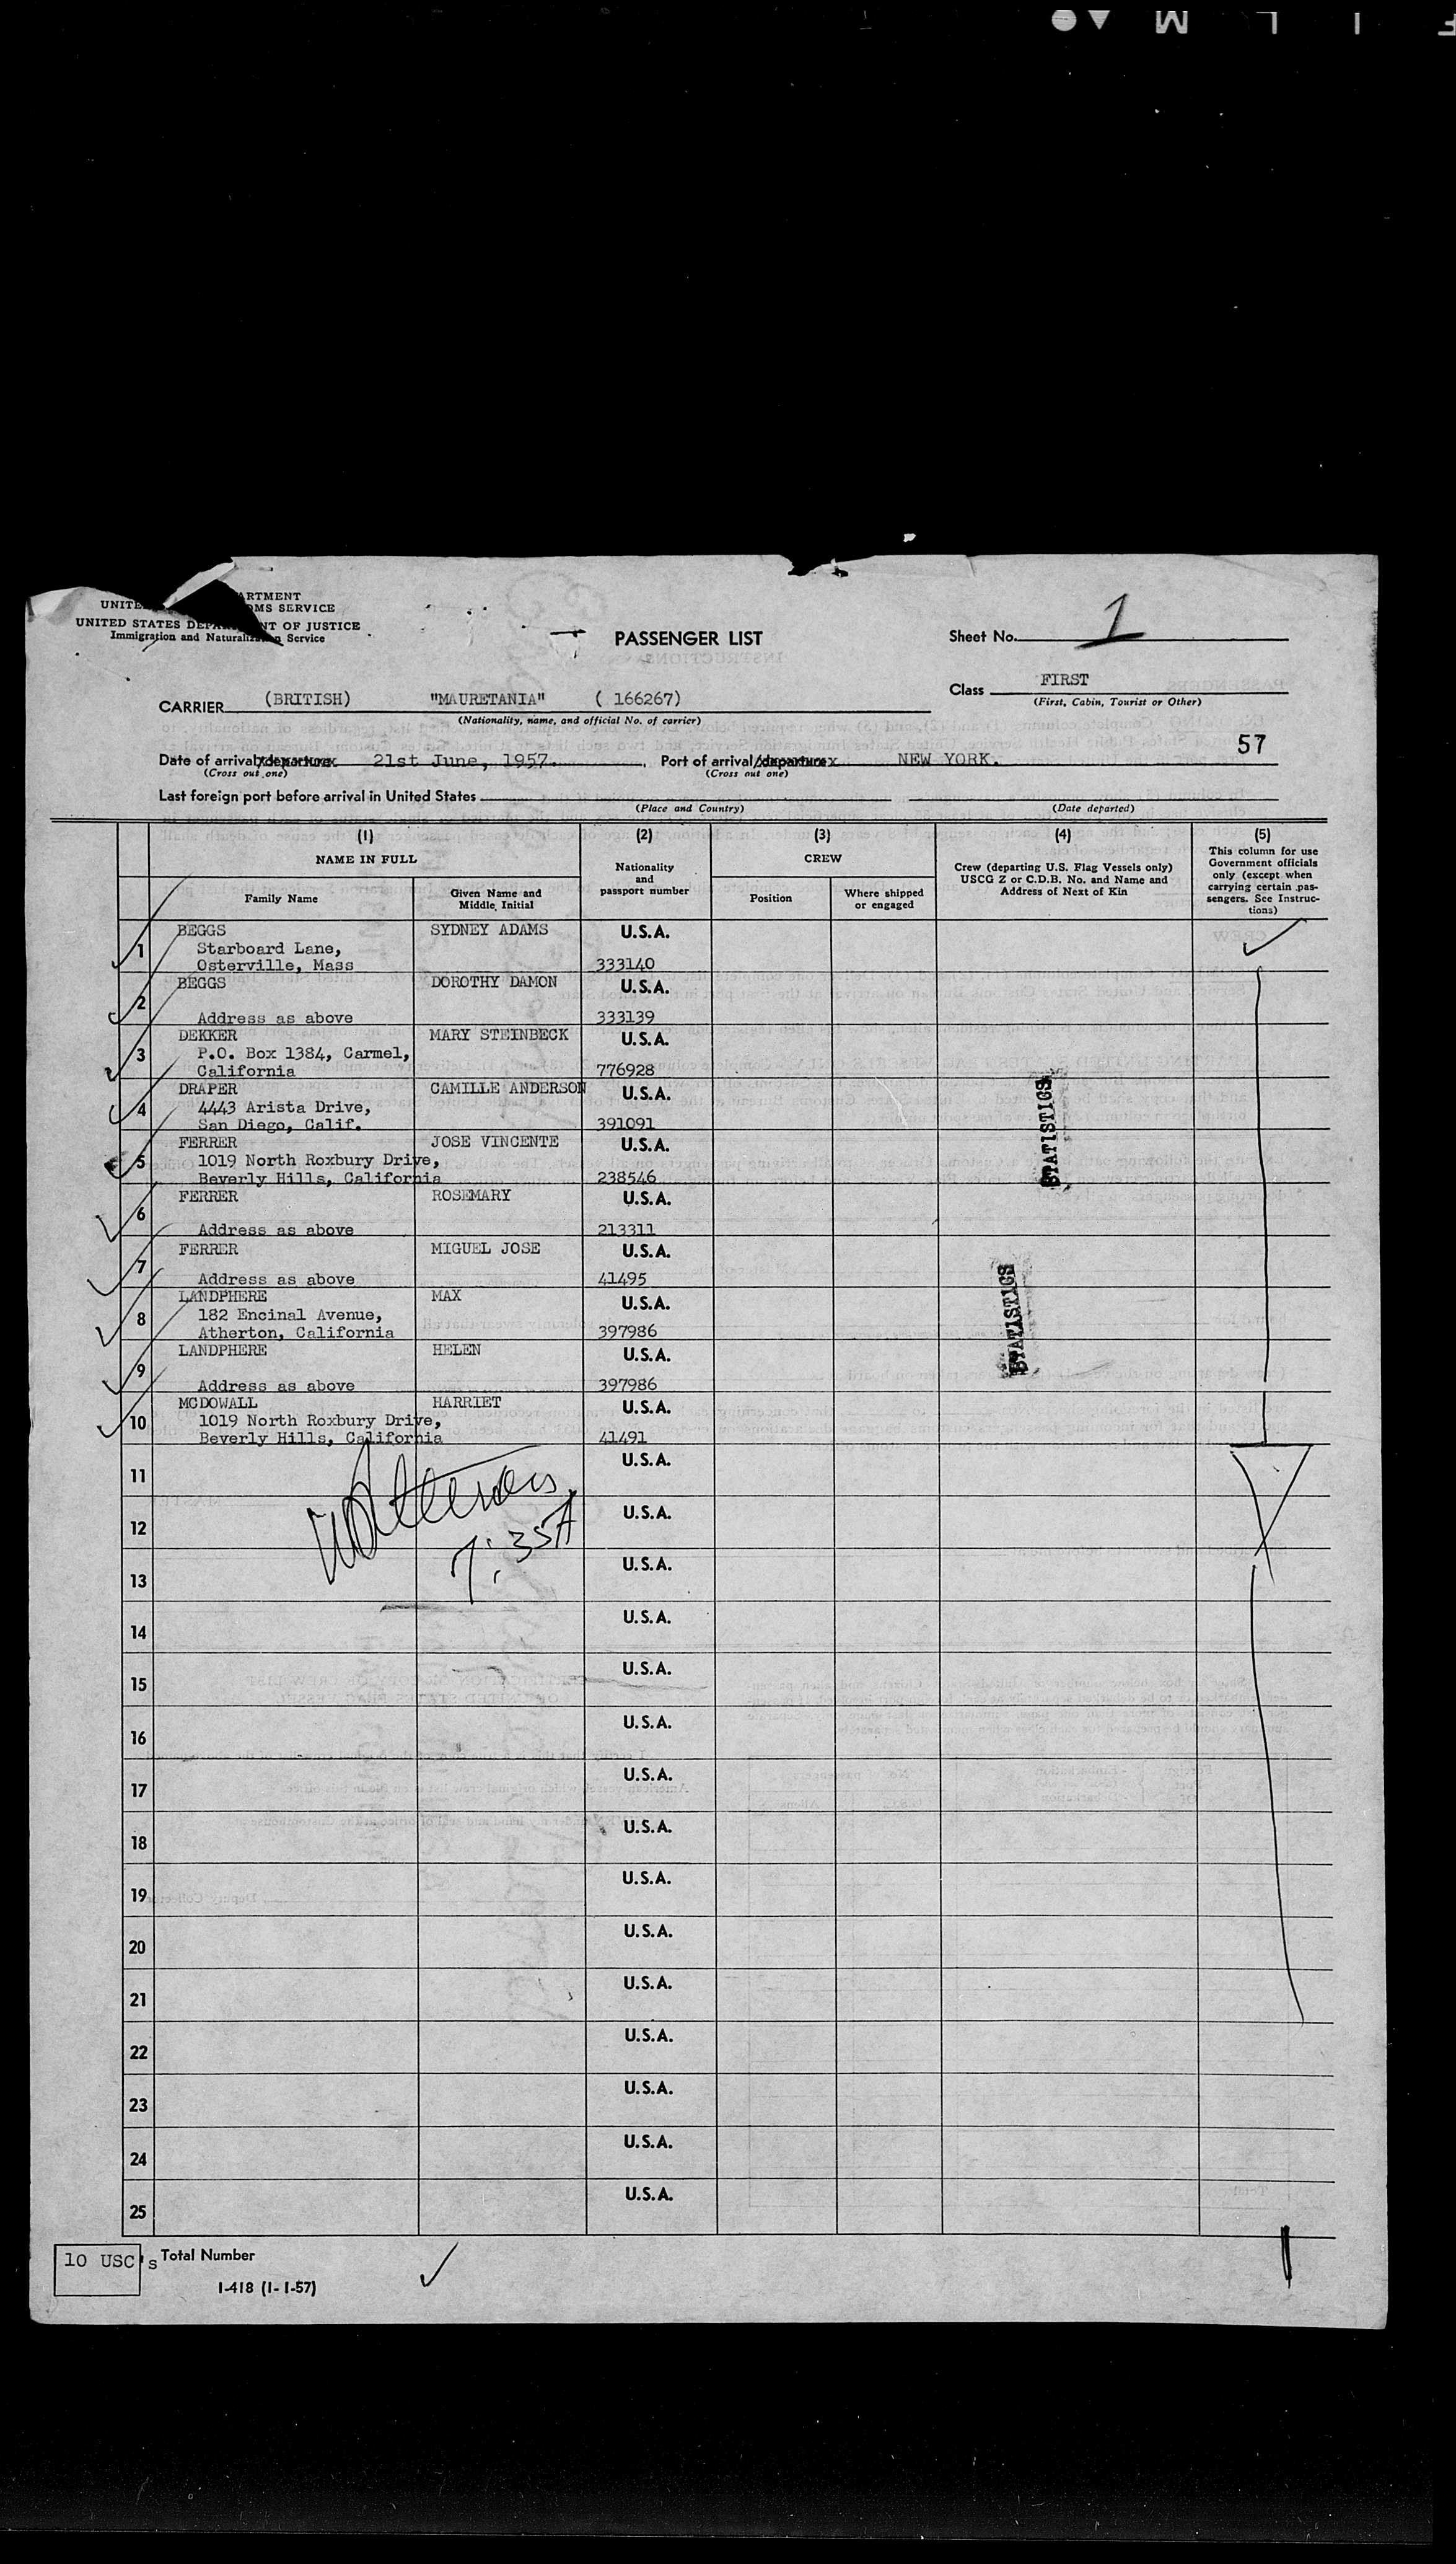 F I L M
ARTMENT
UNITE OMS SERVICE
UNITED STATES DEPA NT OF JUSTICE
Immigration and Naturalization Service
PASSENGER LIST
Sheet No. 1
CARRIER (BRITISH) "MAURETANIA" ( 166267)
(Nationality, name, and official No. of carrier)
Class FIRST
(First, Cabin, Tourist or Other)
57
Date of arrival/departure 21st June, 1957. Port of arrival/departure NEW YORK.
(Cross out one) (Cross out one)
Last foreign port before arrival in United States
(Place and Country) (Date departed)
(1) (2) (3) (4) (5)
NAME IN FULL
Family Name
Given Name and
Middle Initial
Nationality
and
passport number
CREW
Position
Where shipped
or engaged
Crew (departing U.S. Flag Vessels only)
USCG Z or C.D.B. No. and Name and
Address of Next of Kin
This column for use
Government officials
only (except when
carrying certain pas-
sengers. See Instruc-
tions)
1 BEGGS SYDNEY ADAMS U.S.A.
Starboard Lane,
Osterville, Mass 333140
2 BEGGS DOROTHY DAMON U.S.A.
Address as above 333139
3 DEKKER MARY STEINBECK U.S.A.
P.O. Box 1384, Carmel,
California 776928
4 DRAPER CAMILLE ANDERSON U.S.A.
4443 Arista Drive,
San Diego, Calif. 391091
5 FERRER JOSE VINCENTE U.S.A.
1019 North Roxbury Drive,
Beverly Hills, California 238546
6 FERRER ROSEMARY U.S.A.
Address as above 213311
7 FERRER MIGUEL JOSE U.S.A.
Address as above 41495
8 LANDPHERE MAX U.S.A.
182 Encinal Avenue,
Atherton, California 397986
9 LANDPHERE HELEN U.S.A.
Address as above 397986
10 MCDOWALL HARRIET U.S.A.
1019 North Roxbury Drive,
Beverly Hills, California 41491
STATISTICS
STATISTICS
11 U.S.A.
12 U.S.A.
7:35A
13 U.S.A.
14 U.S.A.
15 U.S.A.
16 U.S.A.
17 U.S.A.
18 U.S.A.
19 U.S.A.
20 U.S.A.
21 U.S.A.
22 U.S.A.
23 U.S.A.
24 U.S.A.
25 U.S.A.
10 USC's Total Number
I-418 (1-1-57)